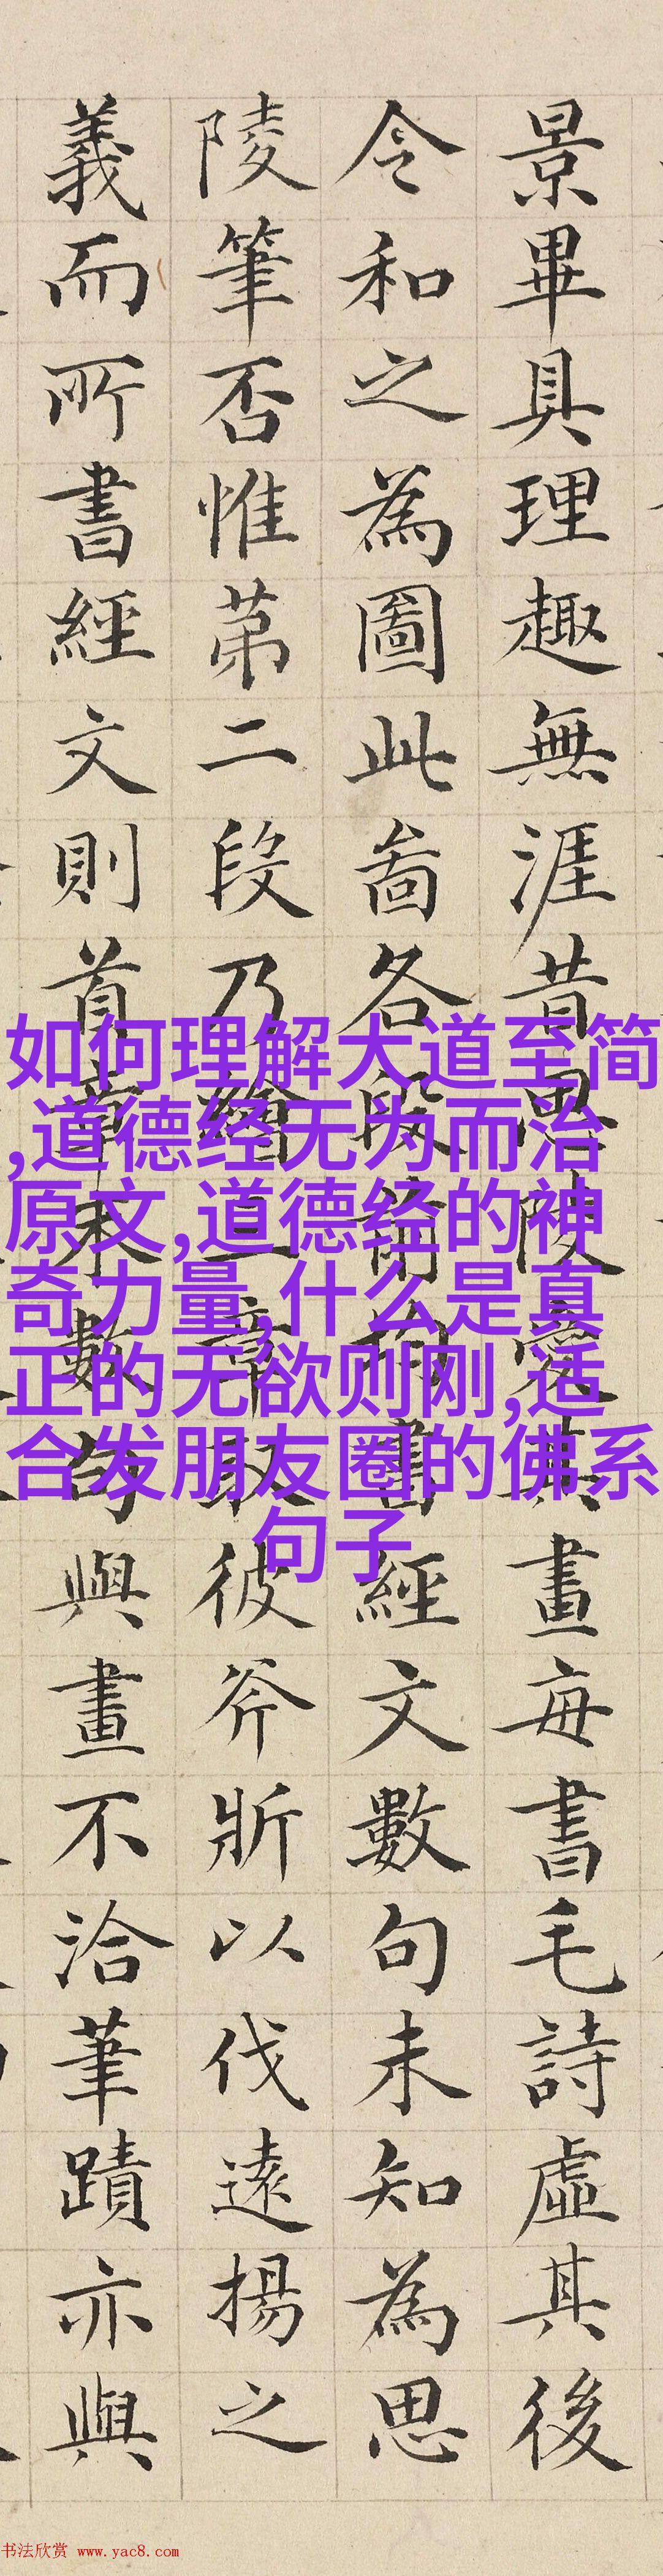 景畢具理趣無涯昔思陵愛其畫每書毛詩虛其後
令和之為圖此啚各段前均書經文數句未知為思
陵筆否惟苐二段乃繪三章取彼斧斨以伐遠揚之
義而所書經文則首章末數句與畫不洽筆蹟亦與
如何理解大道至简
,道德经无为而治
原文,道德经的神
奇力量,什么是真
正的无欲则刚,适
合发朋友圈的佛系
句子
书法欣赏 www.yac8.com